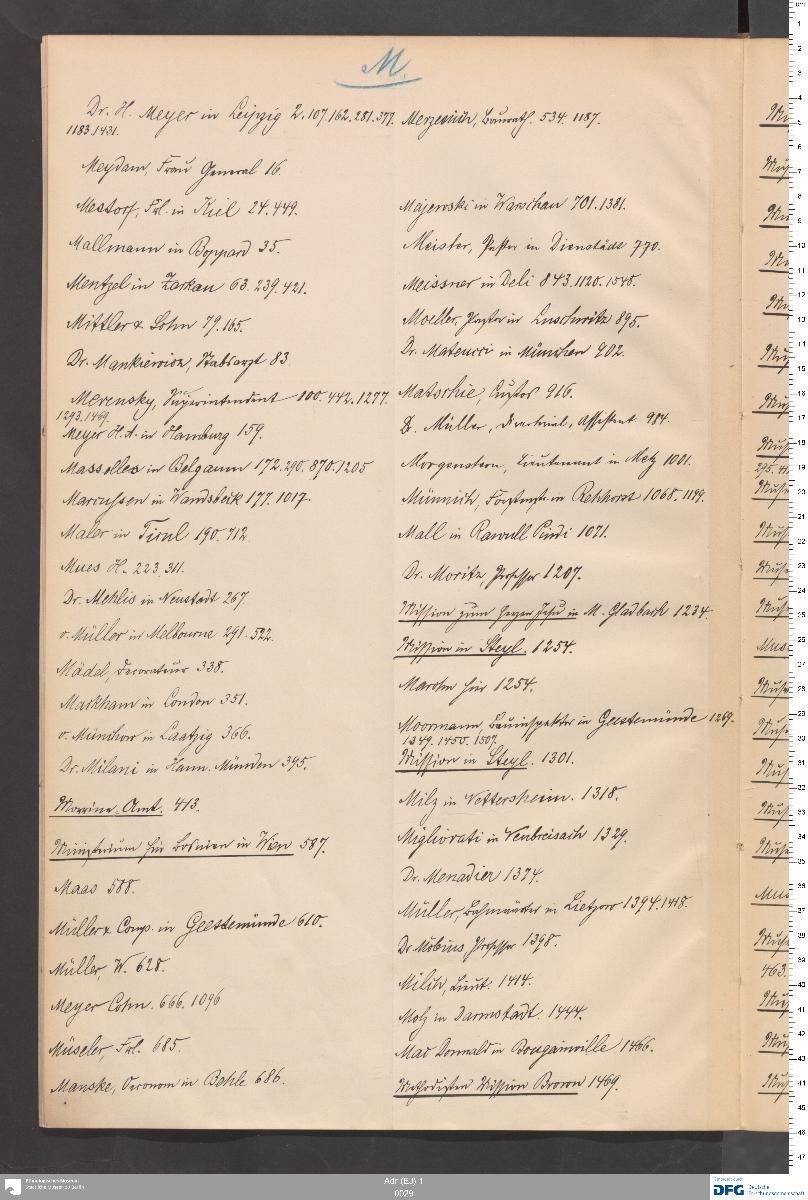 M.
Dr. H. Meyer in Leipzig 2. 107. 162. 281. 377.
1183. 1431.
Meydam, Frau General 16.
Mestorf, Frl. in Kiel 24. 449.
Mallmann in Boppard 35.
Mentzel in 63. 239. 421.
Mittler & Sohn 79. 165.
Dr. Mankiewicz, Stabsarzt 83
Merensky, Superintendent 100. 442. 1277.
1293. 1469.
Meyer H. A. in Hamburg 159.
in Belgaum 172. 290. 870. 1205
Marcussen in Wandsbeck 177. 1017.
Maler in 190. 712.
Mues H. 223. 311.
Dr. Mehlis in Neustadt 267.
v. Müller in Melbourne 291. 522.
Mädel, Decorateur 338.
Markham in London 351.
v. Münchow in Laatzig 366.
Dr. Milani in Hann. Münden 395.
Marine Amt. 413.
Ministerium für Bosnien in Wien 587.
Maas 588.
Müller & Comp. in Geestemünde 610.
Müller, W. 628.
Meyer Cohn. 666. 1096
Müseler, Frl. 685.
Manske, Oeconom in Behle 686.
Merzenich, Baurath. 534. 1187.
Majewski in Warschau 701. 1381.
Meister, Pastor in Dienstädt 770.
Meissner in Deli 843. 1120. 1548.
Moeller, Pastor in 895.
Dr. Mateucci in München 902.
Matschie, Custos 916.
Dr. Müller, Directorial-Assistent 984.
Morgenstern, Lieutenant in Metz 1001.
Münnich, in Rehhorst 1068. 1199.
Mall in Rawull Pindi 1071.
Dr. Moritz, Professor 1207.
Mission zum Herzen Jesu in M. Gladbach 1234.
Mission in Steyl. 1254.
hier 1254.
Moormann, Bauinspektor in Geestemünde 1269.
1349. 1450. 1507.
Mission in Steyl. 1301.
Milz in Vettersheim. 1318.
Migliorati in Neubreisach 1329.
Dr. Menadier 1374.
Müller, Bahnwärter in 1394. 1418.
Dr. Möbius, Professor 1398.
Milch, Lieut. 1414.
Motz in Darmstadt. 1444.
Mac Donnald in Bougainville 1466.
Methodisten Mission Brown 1469.
Ethnologisches Museum
Staatliche Museen zu Berlin
Adr (EJ) 1
0029
DFG Deutsche Forschungsgemeinschaft